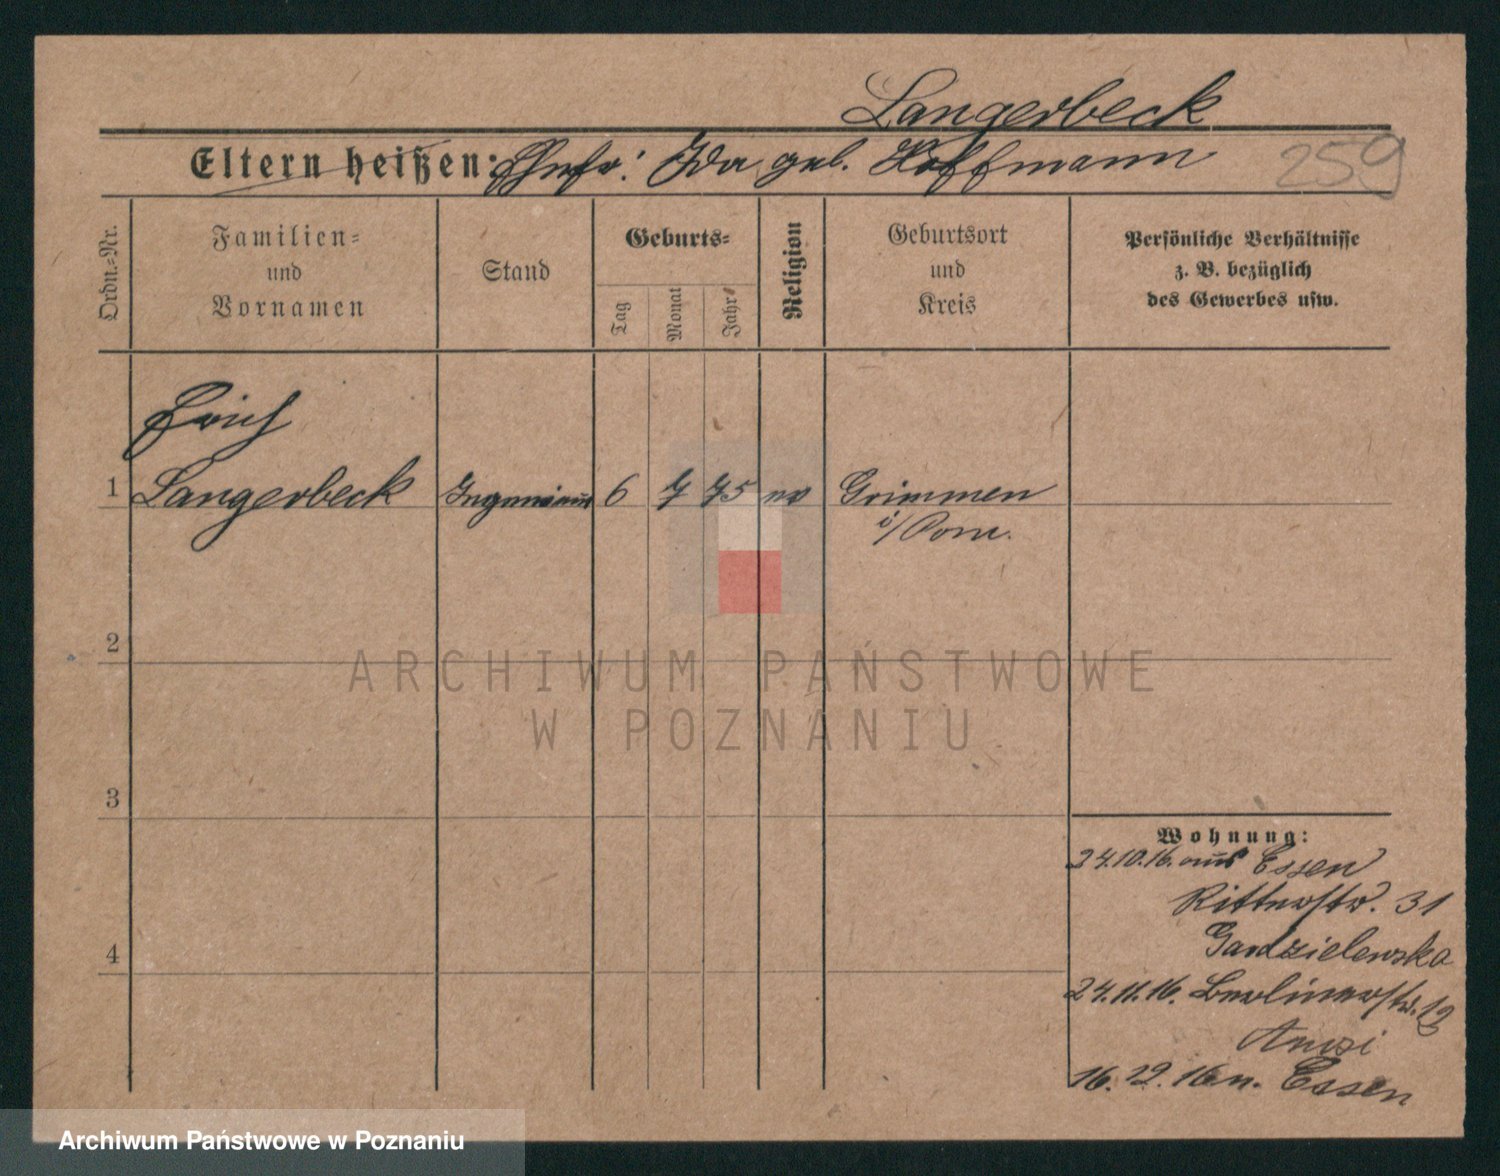 Langerbeck
Eltern heißen: Ehefr: Ida geb. Hoffmann 259
Ordn.-Nr.
Familien-
und
Vornamen
Stand
Geburts-
Tag
Monat
Jahr
Religion
Geburtsort
und
Kreis
Persönliche Verhältnisse
z. B. bezüglich
des Gewerbes usw.
Erich
1 Langerbeck Ingenieur 6 7 75 ev Grimmen
i/Pom.
2
3
4
Wohnung:
24.10.16. aus Essen
Ritterstr. 31
Gandzielewska
24.11.16. Berlinerstr. 12
16. 12. 16 n. Essen
ARCHIWUM PAŃSTWOWE
W POZNANIU
Archiwum Państwowe w Poznaniu